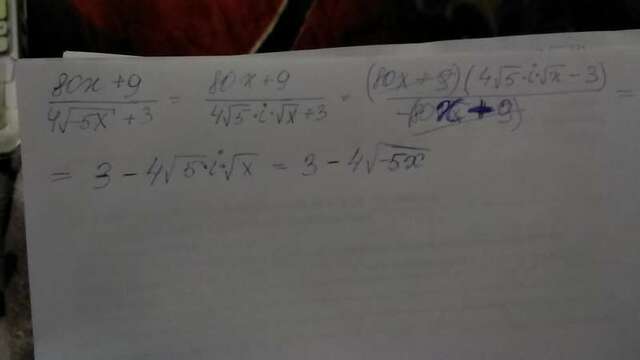 (80x+9)/(4√(-5x)+3) = (80x+9)/(4√5·i·√x+3) = ((80x+9)(4√5·i·√x-3))/(-(80x+9)) =
= 3-4√5·i·√x = 3-4√(-5x)